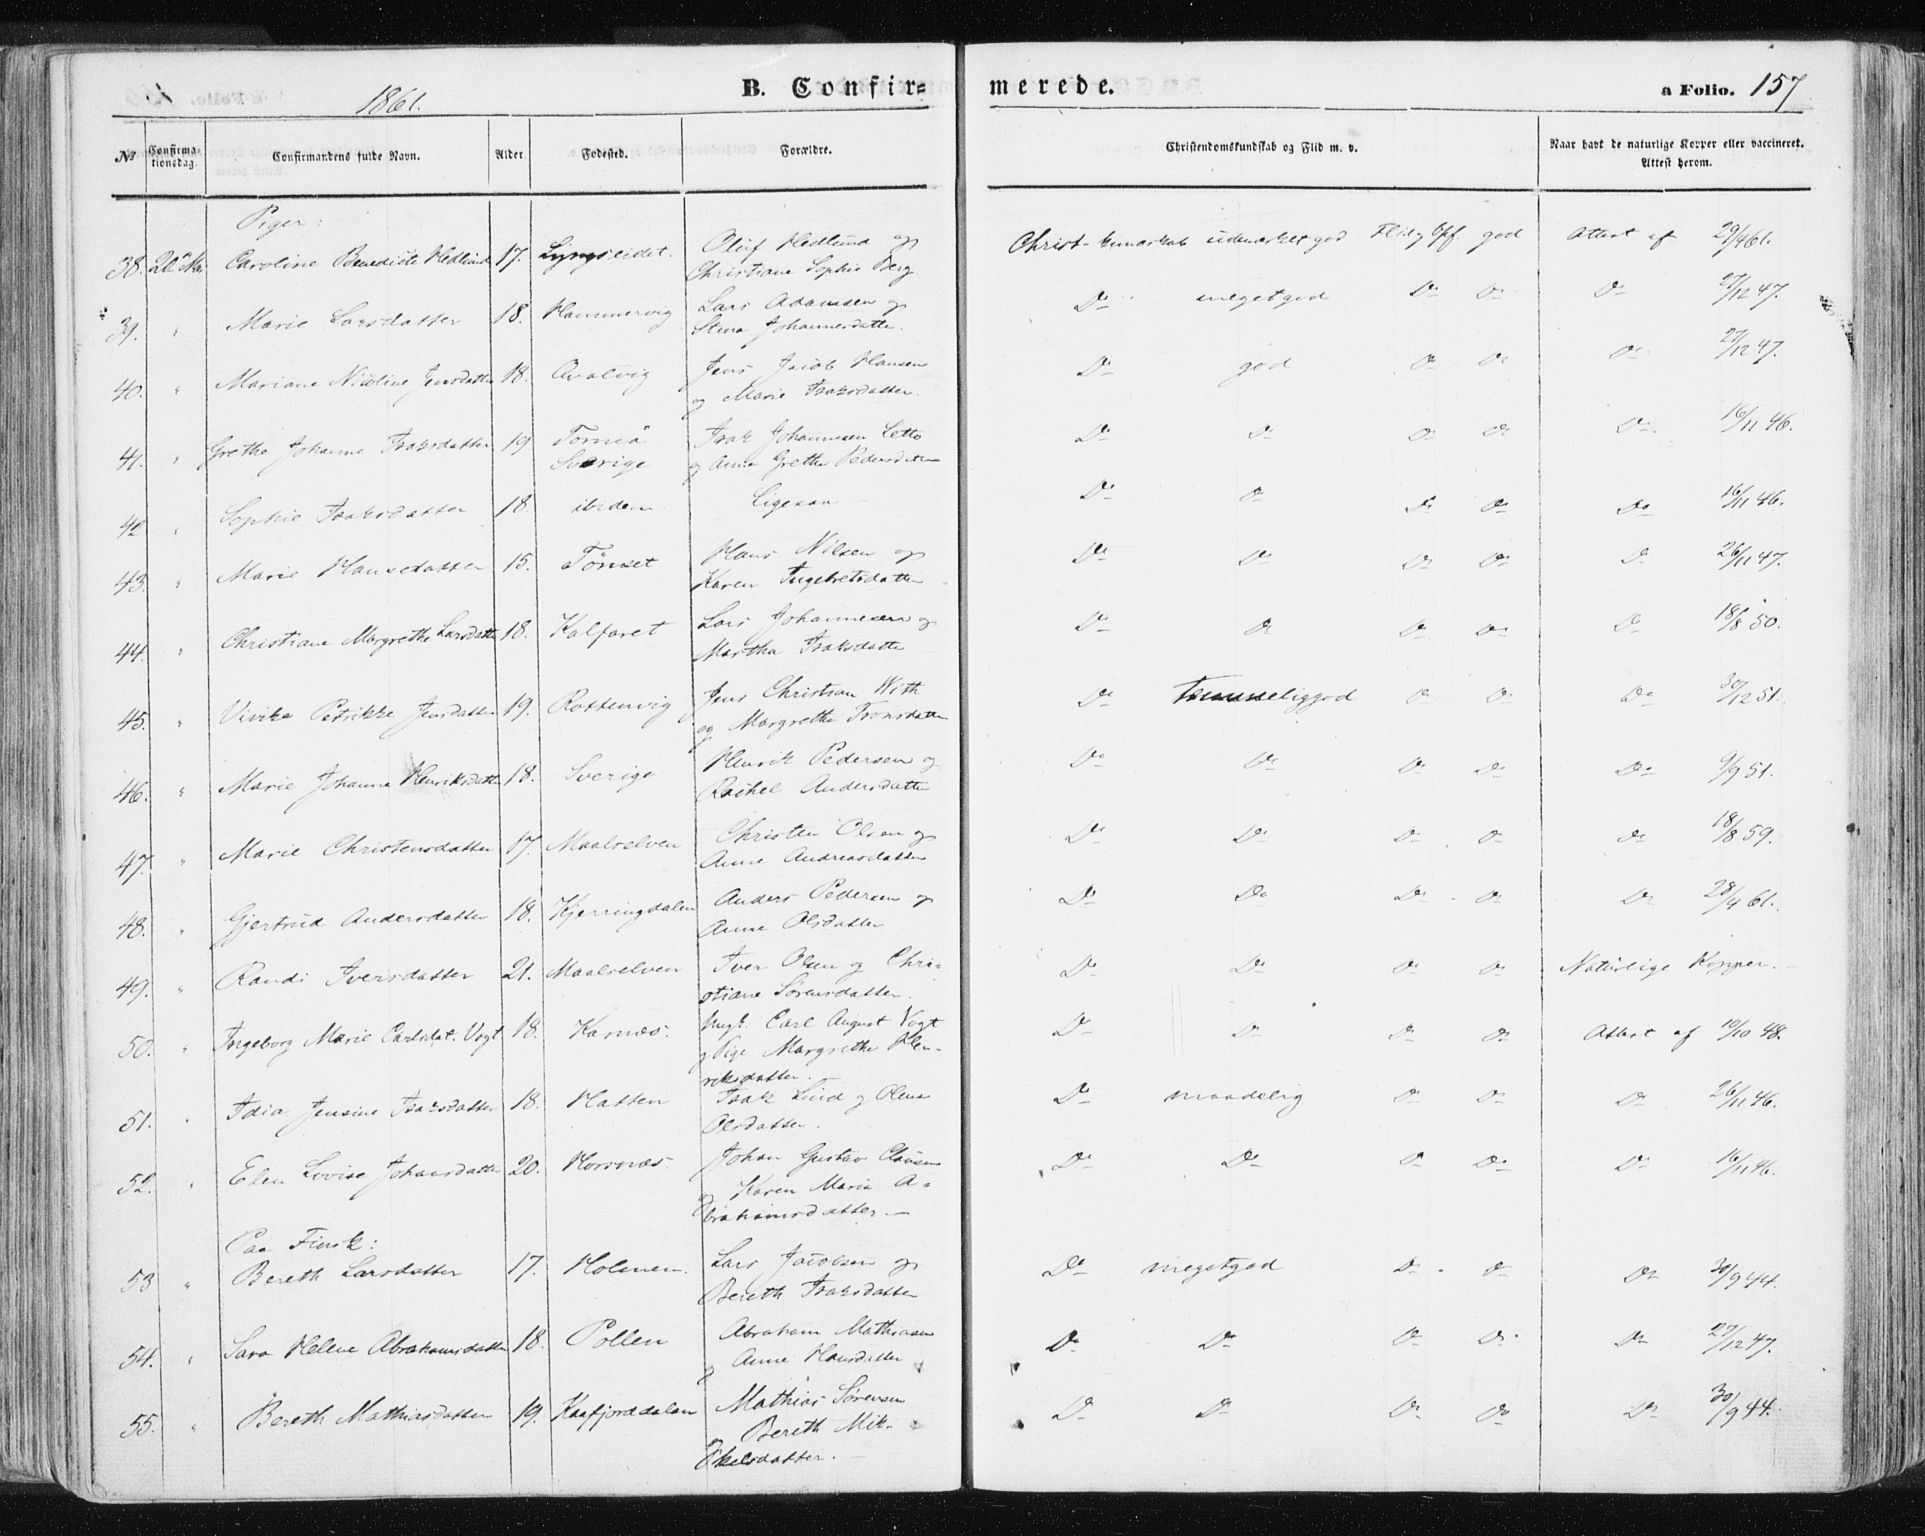 1861.
B. Confir=
merede.
a Folio. 157
№ Confirma-tionsdag. Confirmandens fulde Navn. Alder. Fødested. Forældre. Christendomskundskab og Flid m. v. Naar havt de naturlige Kopper eller vaccineret. Attest herom.
Piger:
38. 20de Mai Caroline Benedicte Hedlund 17. Lyngseidet. Oluf Hedlund og Christiane Sophie Berg Christ. kundskab udmærket god Flid og Opf. god Attest af 29/4 61.
39. " Marie Larsdatter 18. Hammervig Lars Adamsen og Stina Johannesdatter. Do megetgod Do Do Do 27/12 47.
40. " Mariane Nicoline Jensdatter 18. Qvalvig Jens Jacob Hansen og Marie Isaksdatter. Do god Do Do Do 27/12 47.
41. " Grethe Johanne Isaksdatter 19 Torneå Sverige Isak Johannesen Letto og Anne Grethe Pedersdatter Do Do Do Do Do 16/11 46.
42 " Sophie Isaksdatter 18 ibidem Ligesaa Do Do Do Do Do 16/11 46.
43. " Marie Hansdatter 15. Tönset Hans Nilsen og Karen Ingebretsdatter Do Do Do Do Do 26/11 47.
44. " Christiane Margrethe Larsdatter 18. Kalfaret Lars Johannesen og Martha Isaksdatter Do Do Do Do Do 18/8 50.
45. " Vivike Petrikke Jensdatter 19. Rottenvig Jens Christian With og Margrethe Tronsdatter Do temmeliggod Do Do Do 30/12 51.
46. " Marie Johanne Henriksdatter 18. Sverige Henrik Pedersen og Rachel Andersdatter Do Do Do Do Do 9/9 51.
47. " Marie Christensdatter 17. Maalselven Christen Olsen og Anne Andreasdatter Do Do Do Do Do 18/8 59.
48. " Gjertrud Andersdatter 18. Kjerringdalen Anders Pedersen og Anne Olsdatter Do Do Do Do Do 28/4 61.
49. " Randi Iversdatter 21. Maalselven Iver Olsen og Chri-stiane Sørensdatter. Do Do Do Do Naturlige Kopper.
50. " Ingeborg Marie Carlsdat. Vogt 18. Karnæs. Ungk. Carl August Vogt og Pige Margrethe Hen-riksdatter. Do Do Do Do Attest af 10/10 48.
51. " Idia Jensine Isaksdatter 18. Hatten Isak Lind og Olena Olsdatter. Do maadelig Do Do Do 26/11 46.
52. " Elen Lovise Johansdatter 20. Horsnæs. Johan Gustav Clausen og Karen Maria A-brahamsdatter. Do Do Do Do Do 16/11 46.
Paa Finsk:
53 " Bereth Larsdatter 17. Holmen. Lars Jacobsen og Bereth Isaksdatter Do megetgod Do Do Do 30/9 44.
54. " Sara Helene Abrahamsdatter 18. Pollen Abraham Mathiasen og Anne Hansdatter Do Do Do Do Do 27/12 47.
55. " Bereth Mathiasdatter 19. Kaafjorddalen Mathias Sørensen og Bereth Mik-kelsdatter. Do Do Do Do Do 30/9 44.